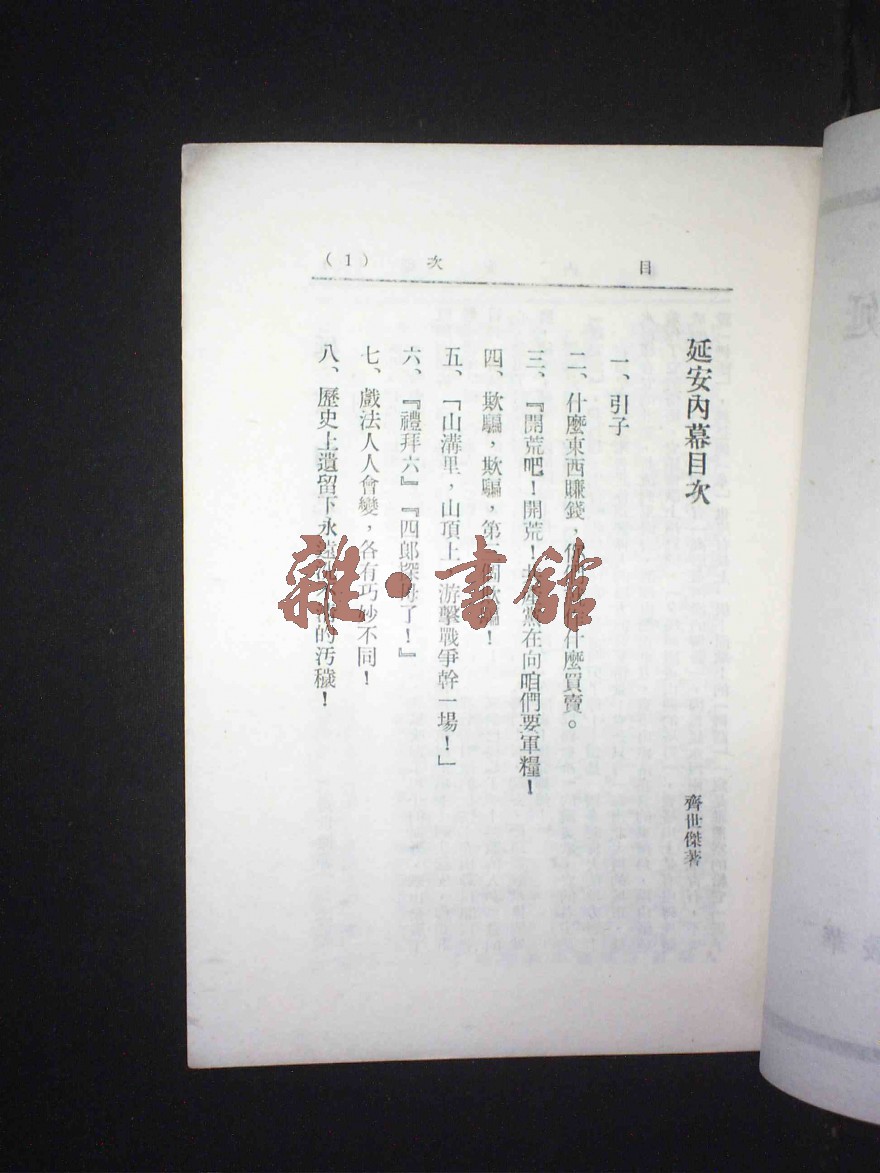 目 次 (1)
延安內幕目次
齊世傑著
一、引子
二、什麼東西賺錢,什麼買賣。
三、『開荒吧!開荒!在向咱們要軍糧!
四、欺騙,欺騙,第!
五、「山溝里,山頂上,游擊戰爭幹一場!」
六、『禮拜六』『四郎探母了!』
七、戲法人人會變,各有巧妙不同!
八、歷史上遺留下永遠的汚穢!
雜·書館